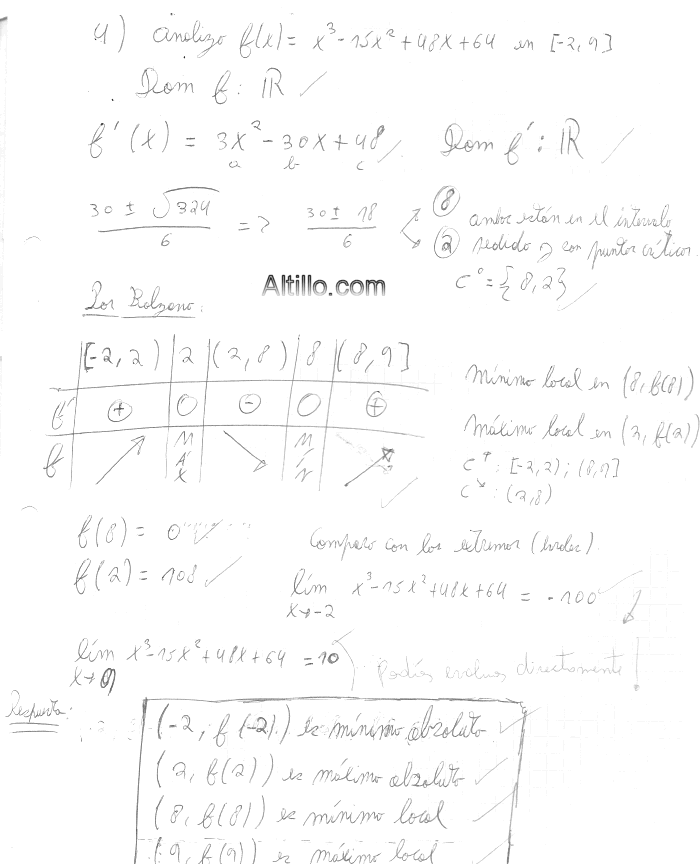 4) analizo f(x) = x³-15x²+48x+64 en [-2,9]
Dom f: ℝ ✓
f'(x) = 3x²-30x+48 ✓ Dom f': ℝ ✓
a b c
30 ± √324 / 6 => 30 ± 18 / 6 8 2
ambos están en el intervalo
pedido y son puntos críticos.
C° = {8,2}
Altillo.com
Por Bolzano:
[-2,2) | 2 | (2,8) | 8 | (8,9]
f' | + | 0 | - | 0 | +
f | ↗ | MÁX | ↘ | Mín | ↗
Mínimo local en (8, f(8))
Máximo local en (2, f(2))
C↑: [-2,2); (8,9]
C↘: (2,8)
f(8) = 0
f(2) = 108 ✓
Comparo con los extremos (bordes).
lím x³-15x²+48x+64 = -100
x→-2
lím x³-15x²+48x+64 = 10
x→9
Podías evaluar directamente!
Respuesta:
(-2, f(-2)) es mínimo absoluto
(2, f(2)) es máximo absoluto
(8, f(8)) es mínimo local
(9, f(9)) es máximo local